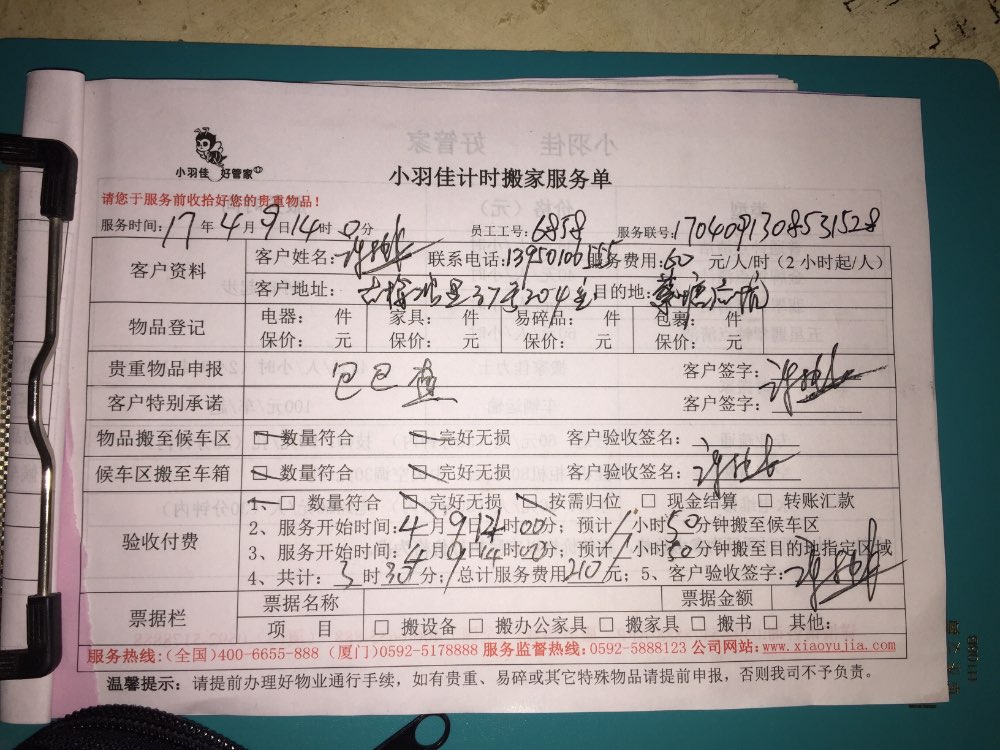 小羽佳 好管家
小羽佳 好管家
小羽佳计时搬家服务单
请您于服务前收拾好您的贵重物品！
服务时间：17年4月9日14时0分 员工工号：6858 服务联号：1704091308531528
客户资料 客户姓名： 联系电话：13950106565 服务费用：60元/人/时（2小时起/人）
客户地址： 37号204室 目的地：
物品登记 电器： 件 家具： 件 易碎品： 件 包裹： 件
保价： 元 保价： 元 保价： 元 保价： 元
贵重物品申报 客户签字：
客户特别承诺 客户签字：
物品搬至候车区 □ 数量符合 □ 完好无损 客户验收签名：
候车区搬至车箱 □ 数量符合 □ 完好无损 客户验收签名：
验收付费 1、□ 数量符合 □ 完好无损 □ 按需归位 □ 现金结算 □ 转账汇款
2、服务开始时间：4月9日 时00分；预计1小时50分钟搬至候车区
3、服务开始时间：4月9日14时00分；预计1小时50分钟搬至目的地指定区域
4、共计：3时30分；总计服务费用210元；5、客户验收签字：
票据栏 票据名称 票据金额
项 目 □ 搬设备 □ 搬办公家具 □ 搬家具 □ 搬书 □ 其他：
服务热线：(全国)400-6655-888 (厦门)0592-5178888 服务监督热线：0592-5888123 公司网站：www.xiaoyujia.com
温馨提示：请提前办理好物业通行手续，如有贵重、易碎或其它特殊物品请提前申报，否则我司不予负责。